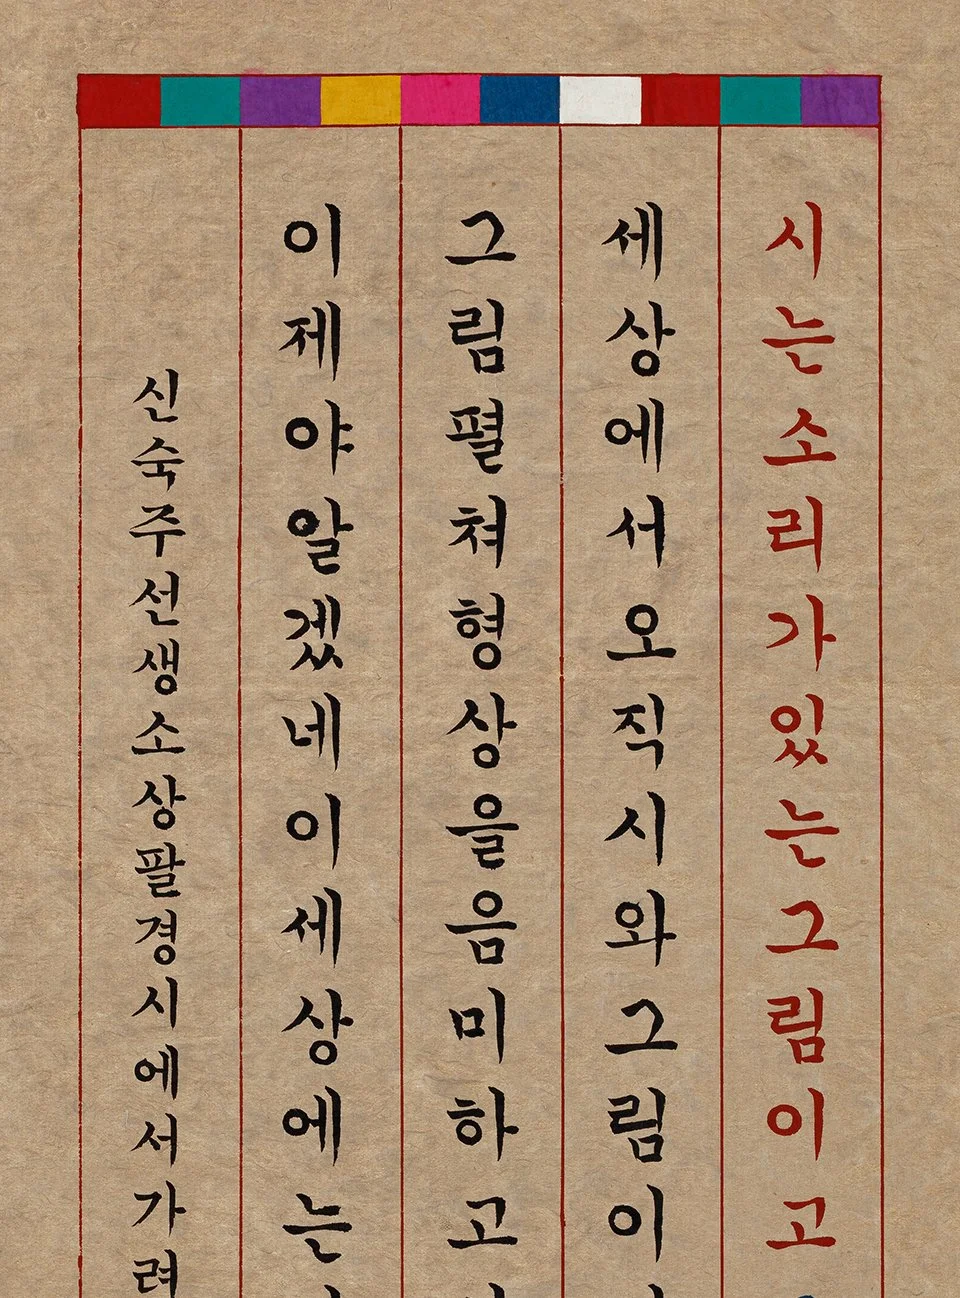 시는소리가있는그림이고
세상에서오직시와그림이
그림펼쳐형상을음미하고
이제야알겠네이세상에는
신숙주선생소상팔경시에서가려